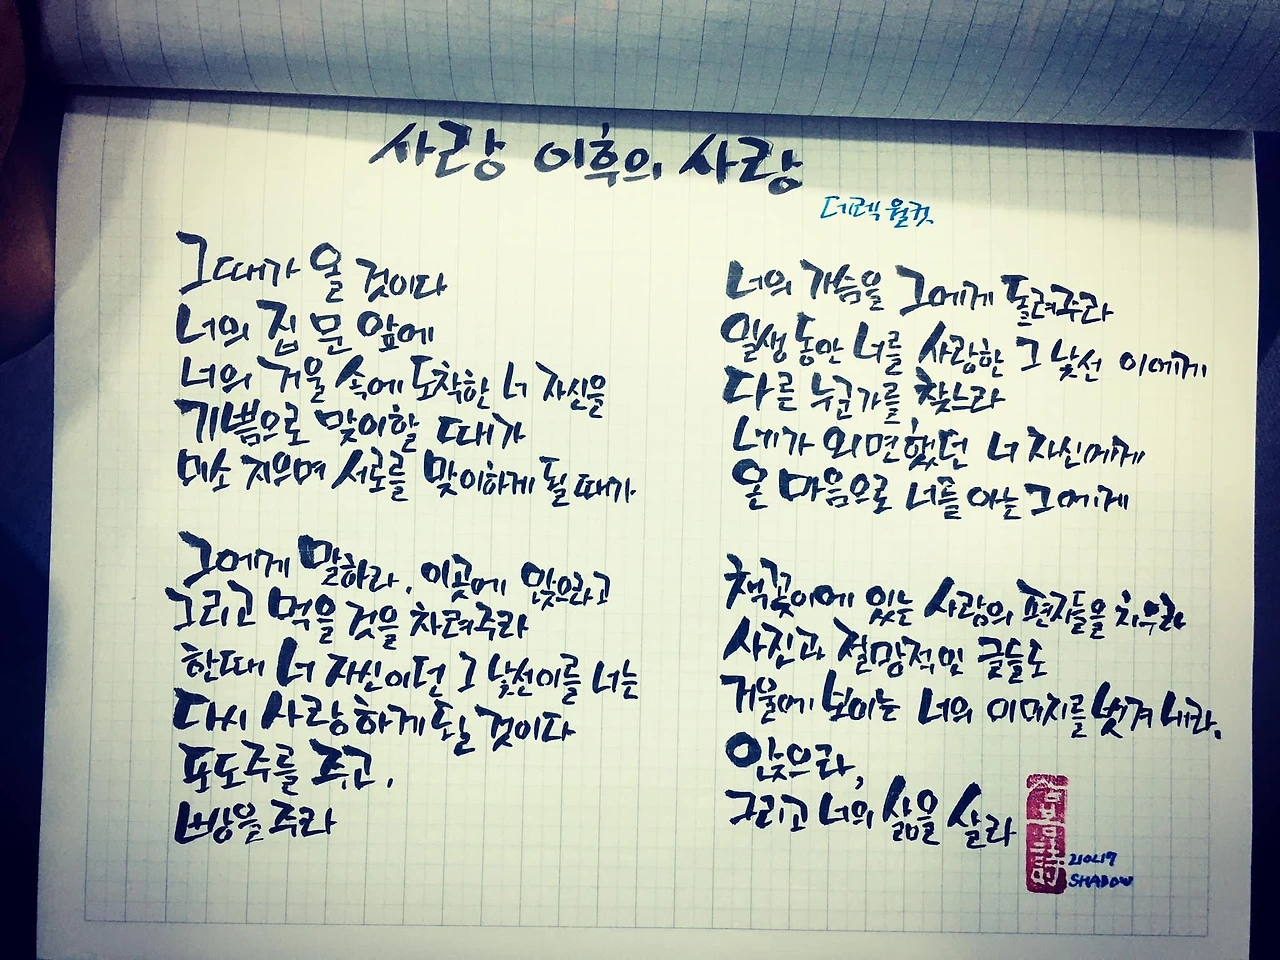 사랑 이후의 사랑
데렉 월컷
그때가 올 것이다
너의 집 문 앞에
너의 거울 속에 도착한 너 자신을
기쁨으로 맞이할 때가
미소 지으며 서로를 맞이하게 될 때가
그에게 말하라, 이곳에 앉으라고
그리고 먹을 것을 차려주라
한때 너 자신이던 그 낯선이를 너는
다시 사랑하게 될 것이다
포도주를 주고,
빵을 주라
너의 가슴을 그에게 돌려주라
일생 동안 너를 사랑한 그 낯선 이에게
다른 누군가를 찾느라
네가 외면했던 너 자신에게
온 마음으로 너를 아는 그에게
책꽂이에 있는 사랑의 편지들을 치우라
사진과 절망적인 글들도
거울에 보이는 너의 이미지를 벗겨 내라.
앉으라,
그리고 너의 삶을 살라
210419
SHADOW